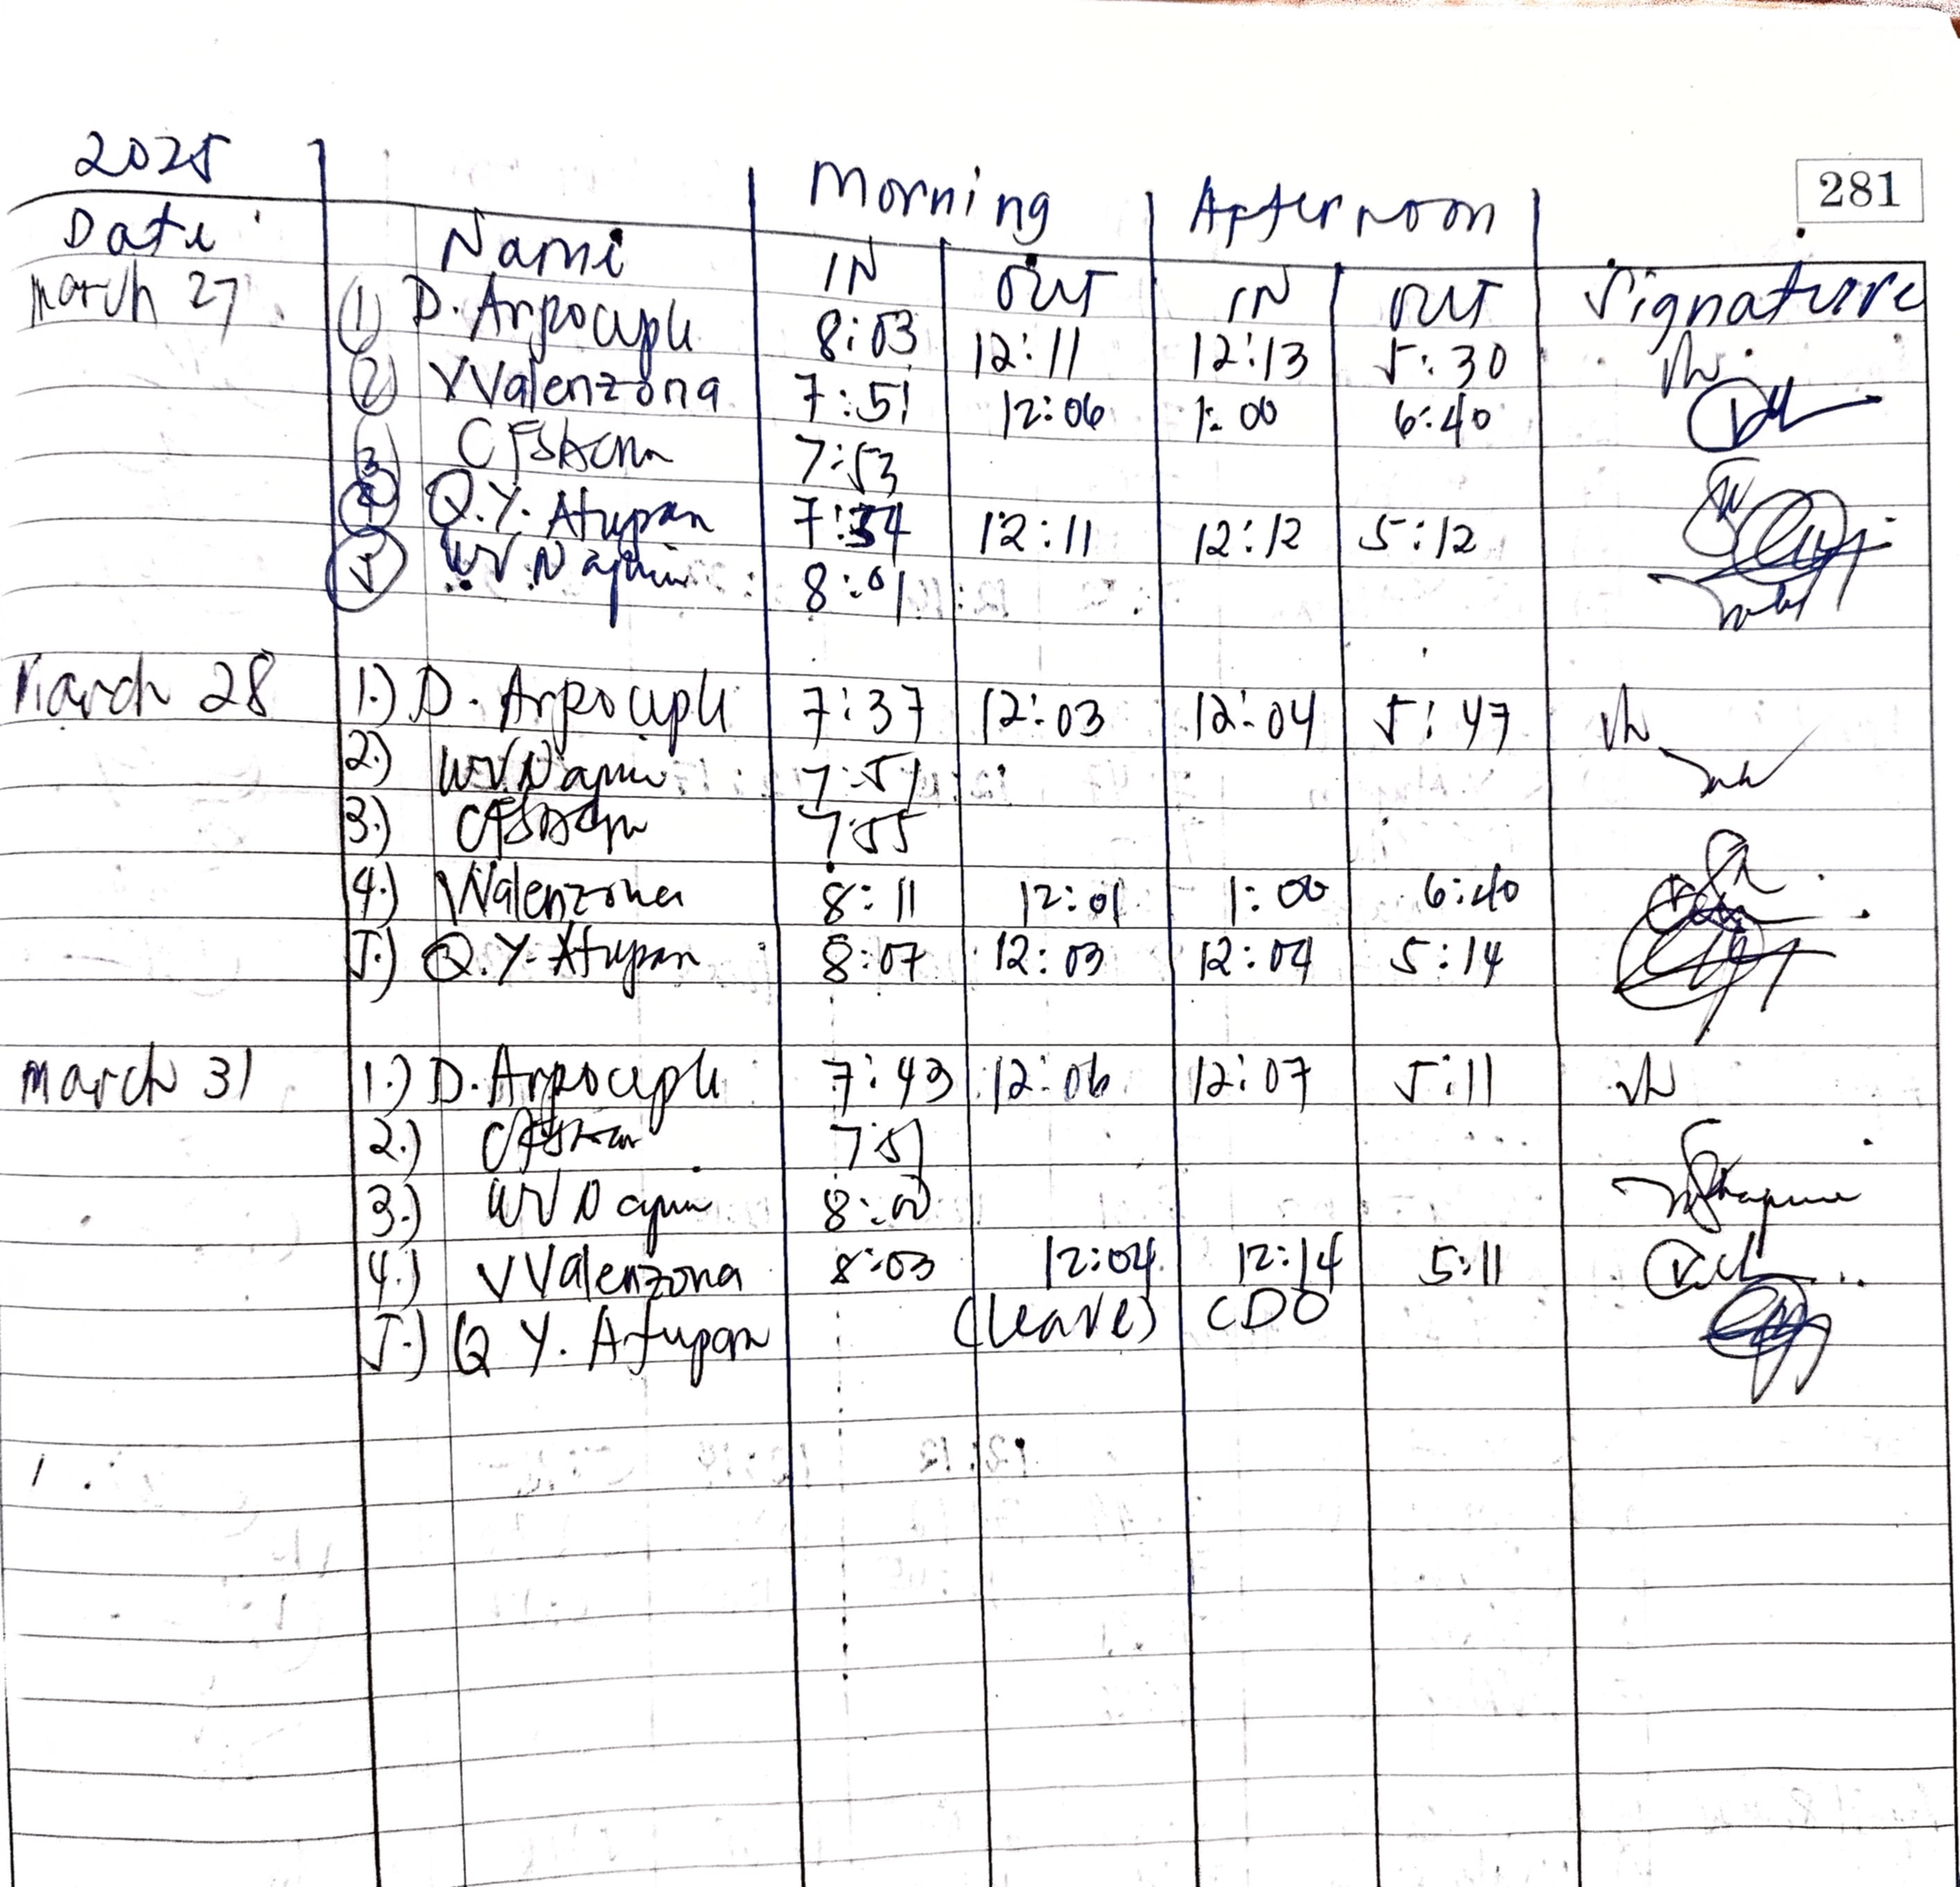 2025 Morning Afternoon 281
Date Name IN OUT IN OUT Signature
March 27 (1) D. Arpocuple 8:03 12:11 12:13 5:30
(2) VValenzona 7:51 12:06 1:00 6:40
(3) 7:53
(4) Q.Y. Atupan 7:34 12:11 12:12 5:12
(5) 8:01
March 28 1.) D. Arpocuple 7:37 12:03 12:04 5:47
2.) 7:51
3.) 7:55
4.) VValenzona 8:11 12:01 1:00 6:40
5.) Q.Y. Atupan 8:07 12:03 12:04 5:14
March 31 1.) D. Arpocuple 7:43 12:06 12:07 5:11
2.) 7:51
3.) 8:00
4.) VValenzona 8:03 12:04 12:14 5:11
5.) Q Y. Atupan (leave) CDO